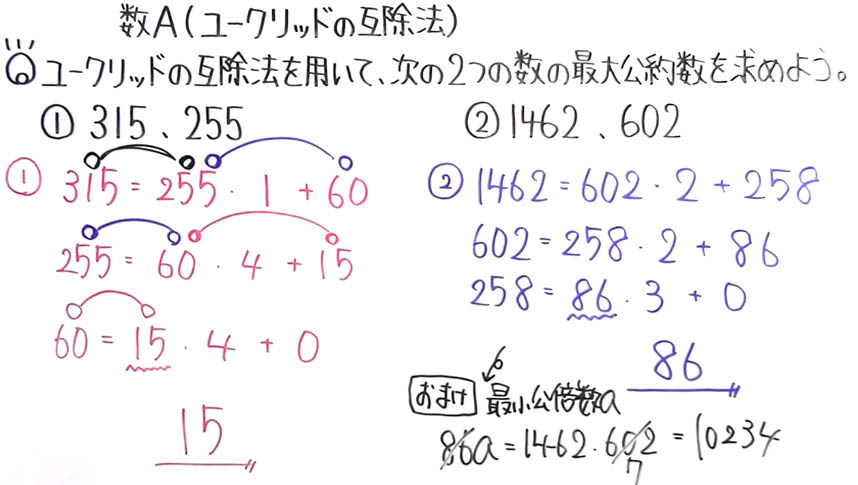 数A(ユークリッドの互除法)
ユークリッドの互除法を用いて、次の2つの数の最大公約数を求めよう。
① 315、255
② 1462、602
① 315 = 255・1 + 60
255 = 60・4 + 15
60 = 15・4 + 0
15
② 1462 = 602・2 + 258
602 = 258・2 + 86
258 = 86・3 + 0
86
おまけ 最小公倍数a
86a = 1462・602 = 10234
7